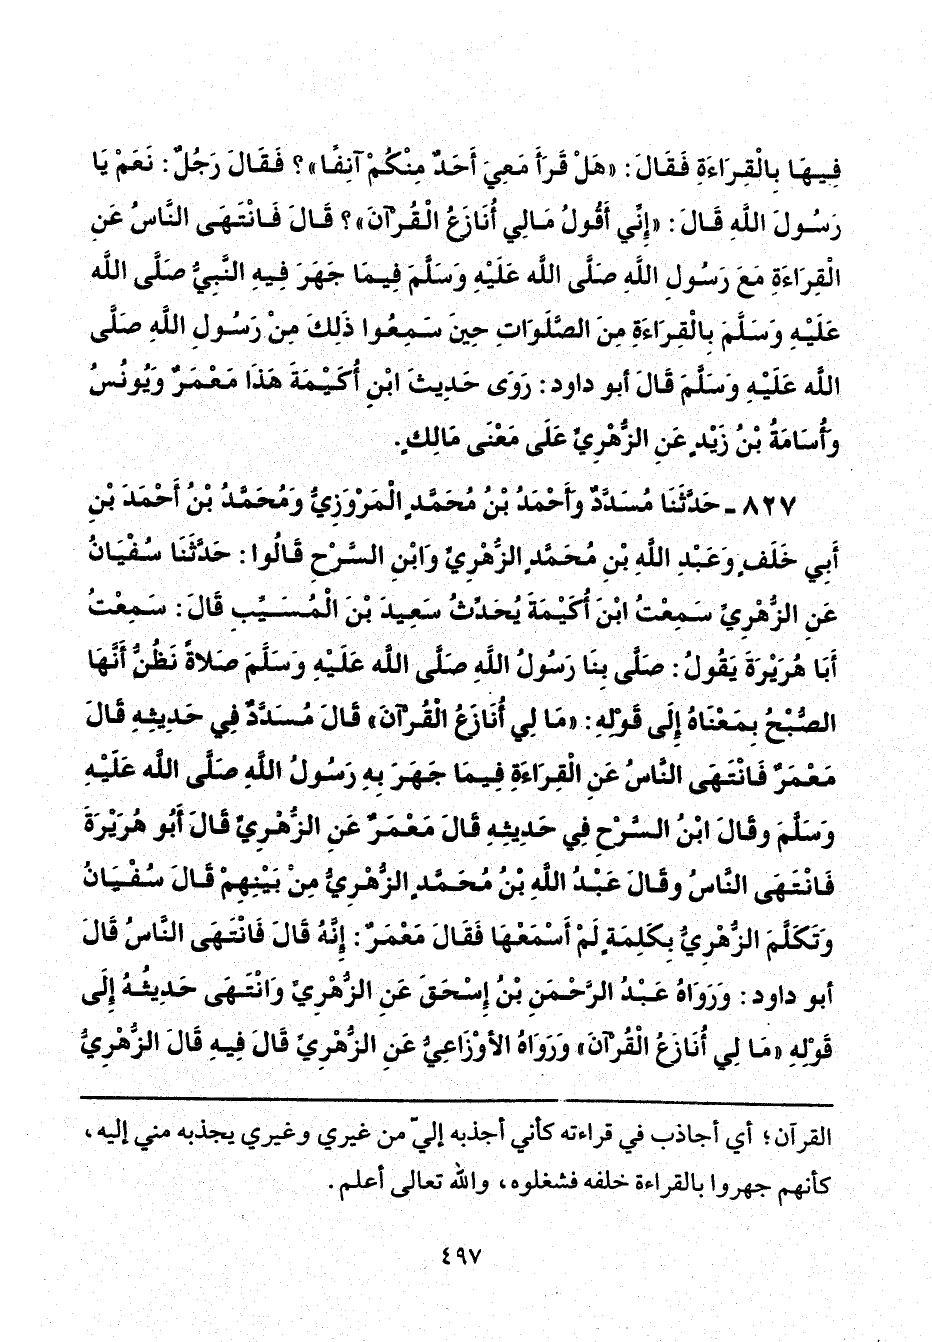 فِيهَا بِالْقِرَاءَةِ فَقَالَ: «هَلْ قَرَأَ مَعِيَ أَحَدٌ مِنْكُمْ آنِفًا»؟ فَقَالَ رَجُلٌ: نَعَمْ يَا
رَسُولَ اللَّهِ قَالَ: «إِنِّي أَقُولُ مَالِي أُنَازَعُ الْقُرآنَ»؟ قَالَ فَانْتَهَى النَّاسُ عَنِ
الْقِرَاءَةِ مَعَ رَسُولِ اللَّهِ صَلَّى اللَّه عَلَيْهِ وَسَلَّمَ فِيمَا جَهَرَ فِيهِ النَّبِيُّ صَلَّى اللَّه
عَلَيْهِ وَسَلَّمَ بِالْقِرَاءَةِ مِنَ الصَّلَوَاتِ حِينَ سَمِعُوا ذَلِكَ مِنْ رَسُولِ اللَّهِ صَلَّى
اللَّه عَلَيْهِ وَسَلَّمَ قَالَ أبو داود: رَوَى حَدِيثَ ابْنِ أُكَيْمَةَ هَذَا مَعْمَرٌ وَيُونُسُ
وَأُسَامَةُ بْنُ زَيْدٍ عَنِ الزُّهْرِيِّ عَلَى مَعْنَى مَالِكٍ.
٨٢٧ ـ حَدَّثَنَا مُسَدَّدٌ وَأَحْمَدُ بْنُ مُحَمَّدٍ الْمَرْوَزِيُّ وَمُحَمَّدُ بْنُ أَحْمَدَ بْنِ
أَبِي خَلَفٍ وَعَبْدِ اللَّهِ بْنِ مُحَمَّدٍ الزُّهْرِيِّ وَابْنِ السَّرْحِ قَالُوا: حَدَّثَنَا سُفْيَانُ
عَنِ الزُّهْرِيِّ سَمِعْتُ ابْنَ أُكَيْمَةَ يُحَدِّثُ سَعِيدَ بْنَ الْمُسَيِّبِ قَالَ: سَمِعْتُ
أَبَا هُرَيْرَةَ يَقُولُ: صَلَّى بِنَا رَسُولُ اللَّهِ صَلَّى اللَّه عَلَيْهِ وَسَلَّمَ صَلاةً نَظُنُّ أَنَّهَا
الصُّبْحُ بِمَعْنَاهُ إِلَى قَوْلِهِ: «مَا لِي أُنَازَعُ الْقُرْآنَ» قَالَ مُسَدَّدٌ فِي حَدِيثِهِ قَالَ
مَعْمَرٌ فَانْتَهَى النَّاسُ عَنِ الْقِرَاءَةِ فِيمَا جَهَرَ بِهِ رَسُولُ اللَّهِ صَلَّى اللَّه عَلَيْهِ
وَسَلَّمَ وقَالَ ابْنُ السَّرْحِ فِي حَدِيثِهِ قَالَ مَعْمَرٌ عَنِ الزُّهْرِيِّ قَالَ أَبُو هُرَيْرَةَ
فَانْتَهَى النَّاسُ وقَالَ عَبْدُ اللَّهِ بْنُ مُحَمَّدٍ الزُّهْرِيُّ مِنْ بَيْنِهِمْ قَالَ سُفْيَانُ
وَتَكَلَّمَ الزُّهْرِيُّ بِكَلِمَةٍ لَمْ أَسْمَعْهَا فَقَالَ مَعْمَرٌ: إِنَّهُ قَالَ فَانْتَهَى النَّاسُ قَالَ
أبو داود: وَرَوَاهُ عَبْدُ الرَّحْمَنِ بْنُ إِسْحَقَ عَنِ الزُّهْرِيِّ وَانْتَهَى حَدِيثُهُ إِلَى
قَوْلِهِ «مَا لِي أُنَازَعُ الْقُرْآنَ» وَرَوَاهُ الأوْزَاعِيُّ عَنِ الزُّهْرِيِّ قَالَ فِيهِ قَالَ الزُّهْرِيُّ
القرآن؛ أي أجاذب في قراءته كأني أجذبه إليّ من غيري وغيري يجذبه مني إليه،
كأنهم جهروا بالقراءة خلفه فشغلوه، والله تعالى أعلم.
٤٩٧